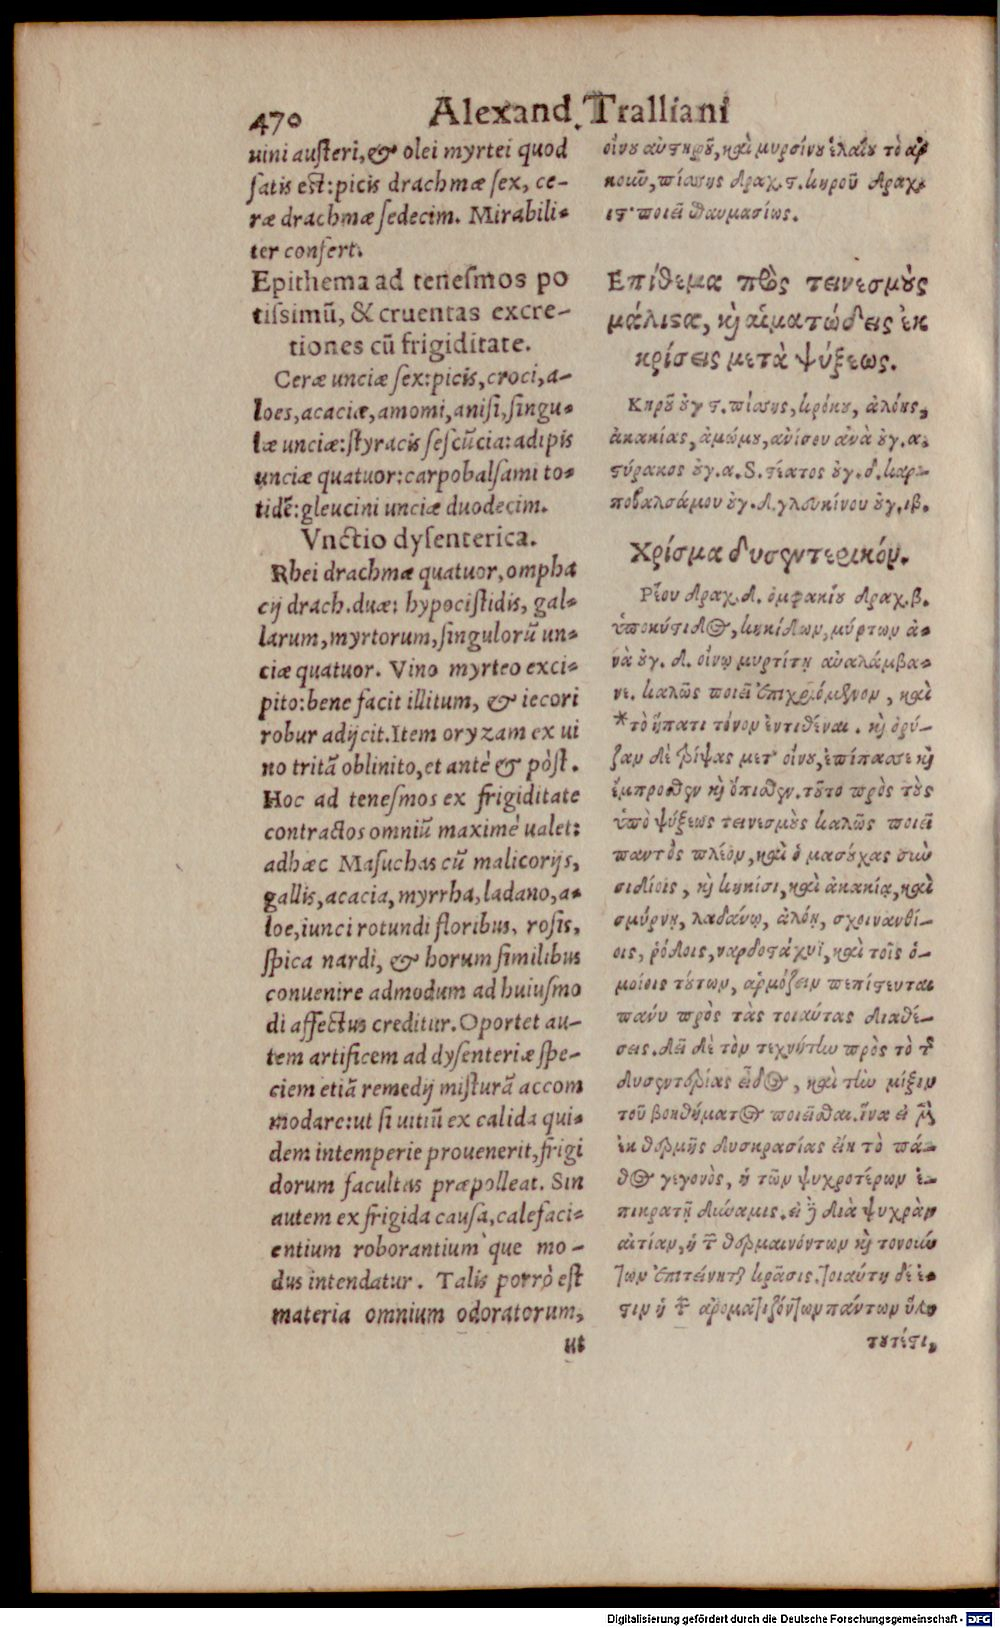 470 Alexand. Tralliani
uini austeri, & olei myrtei quod
satis est: picis drachmæ sex, ce-
ræ drachmæ sedecim. Mirabili-
ter confert.
Epithema ad tenesmos po
tissimū, & cruentas excre-
tiones cū frigiditate.
Ceræ unciæ sex: picis, croci, a-
loes, acaciæ, amomi, anisi, singu-
læ unciæ: styracis sescūcia: adipis
unciæ quatuor: carpobalsami to-
tidē: gleucini unciæ duodecim.
Vnctio dysenterica.
Rhei drachmæ quatuor, ompha
cij drach. duæ: hypocistidis, gal-
larum, myrtorum, singulorū un-
ciæ quatuor. Vino myrteo exci-
pito: bene facit illitum, & iecori
robur adijcit. Item oryzam ex ui
no tritā oblinito, et antè & pòst.
Hoc ad tenesmos ex frigiditate
contractos omniū maximè ualet:
adhæc Masuchas cū malicorijs,
gallis, acacia, myrrha, ladano, a-
loe, iunci rotundi floribus, rosis,
spica nardi, & horum similibus
conuenire admodum ad huiusmo
di affectus creditur. Oportet au-
tem artificem ad dysenteriæ spe-
ciem etiā remedij misturā accom
modare: ut si uitiū ex calida qui-
dem intemperie prouenerit, frigi
dorum facultas præpolleat. Sin
autem ex frigida causa, calefaci-
entium roborantium`que mo-
dus intendatur. Talis porrò est
materia omnium odoratorum,
ut
οἴνου αὐστηροῦ, καὶ μυρσίνου ἐλαίου τὸ ἀρ
κοιῦ, πίσσης δραχ. ϛ. κηροῦ δραχ.
ιϛ· ποιεῖ θαυμασίως.
Επίθεμα πρὸς τεινεσμοὺς
μάλιστα, καὶ αἱματώδεις ἐκ
κρίσεις μετὰ ψύξεως.
Κηροῦ οὐγ ϛ. πίσσης, κρόκου, ἀλόης,
ἀκακίας, ἀμώμου, ἀνίσου ἀνὰ οὐγ. α.
στύρακος οὐγ. α. S. στέατος οὐγ. δ. καρ-
ποβαλσάμου οὐγ. δ. γλευκίνου οὐγ. ιβ.
Χρίσμα δυσεντερικόν.
Ρίου δραχ. δ. ὀμφακίου δραχ. β.
ὑποκύστιδος, κηκίδων, μύρτων ἀ-
νὰ οὐγ. δ. οἴνῳ μυρτίτῃ ἀναλάμβα-
νε. καλῶς ποιεῖ ἐπιχριόμενον, καὶ
*τὸ ἥπατι τόνον ἐντιθέναι. καὶ ὀρύ-
ζαν δὲ τρίψας μετ' οἴνου, ἐπίπασσε καὶ
ἔμπροσθεν καὶ ὄπισθεν. τοῦτο πρὸς τοὺς
ὑπὸ ψύξεως τεινεσμοὺς καλῶς ποιεῖ
παντὸς πλέον, καὶ ὁ μασούχας σὺν
σιδίοις, καὶ κηκίσι, καὶ ἀκακίᾳ, καὶ
σμύρνῃ, λαδάνῳ, ἀλόῃ, σχοινανθί-
οις, ῥόδοις, ναρδοστάχυϊ, καὶ τοῖς ὁ-
μοίοις τούτων, ἁρμόζειν πεπίστευται
πάνυ πρὸς τὰς τοιαύτας διαθέ-
σεις. δεῖ δὲ τὸν τεχνήτην πρὸς τὸ τῆς
δυσεντερίας εἶδος, καὶ τὴν μίξιν
τοῦ βοηθήματος ποιεῖσθαι. ἵνα εἰ μὲν
ἐκ θερμῆς δυσκρασίας εἴη τὸ πά-
θος γεγονὸς, ἡ τῶν ψυχροτέρων ἐ-
πικρατῇ δύναμις. εἰ δὲ διὰ ψυχρὰν
αἰτίαν, ἡ τῶν θερμαινόντων καὶ τονούν
των ἐπιτείνηται κρᾶσις. τοιαύτη δέ ἐ-
στιν ἡ τῶν ἀρωματιζόντων πάντων ὕλη
τουτέστι,
Digitalisierung gefördert durch die Deutsche Forschungsgemeinschaft - DFG